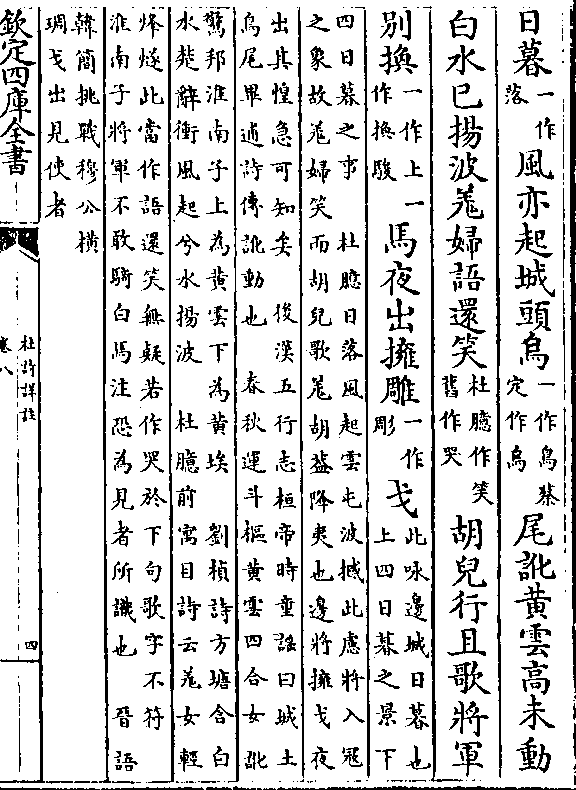 日暮一作落風亦起城頭烏一作鳥蔡定作烏尾訛黄雲高未動
白水已揚波羌婦語還笑杜臆作笑舊作哭胡兒行且歌將軍
别換一作上一作換駿馬夜出擁雕一作彫戈此咏邊城日暮也上四日暮之景下
四日暮之事 杜臆日落風起雲屯波撼此慮將入冦
之象故羌婦笑而胡兒歌羌胡葢降夷也邊將擁戈夜
出其惶急可知矣 後漢五行志桓帝時童謡曰城土
烏尾畢逋詩傳訛動也 春秋運斗樞黄雲四合女訛
驚邦淮南子上為黄雲下為黄埃 劉楨詩方塘含白
水楚辭衝風起兮水揚波 杜臆前寓目詩云羌女輕
烽燧此當作語還笑無疑若作哭於下句歌字不符
淮南子將軍不敢騎白馬注恐為見者所識也 晉語
韓簡挑戰穆公横
琱戈出見使者
欽定四庫全書
杜詩詳註
卷八
四